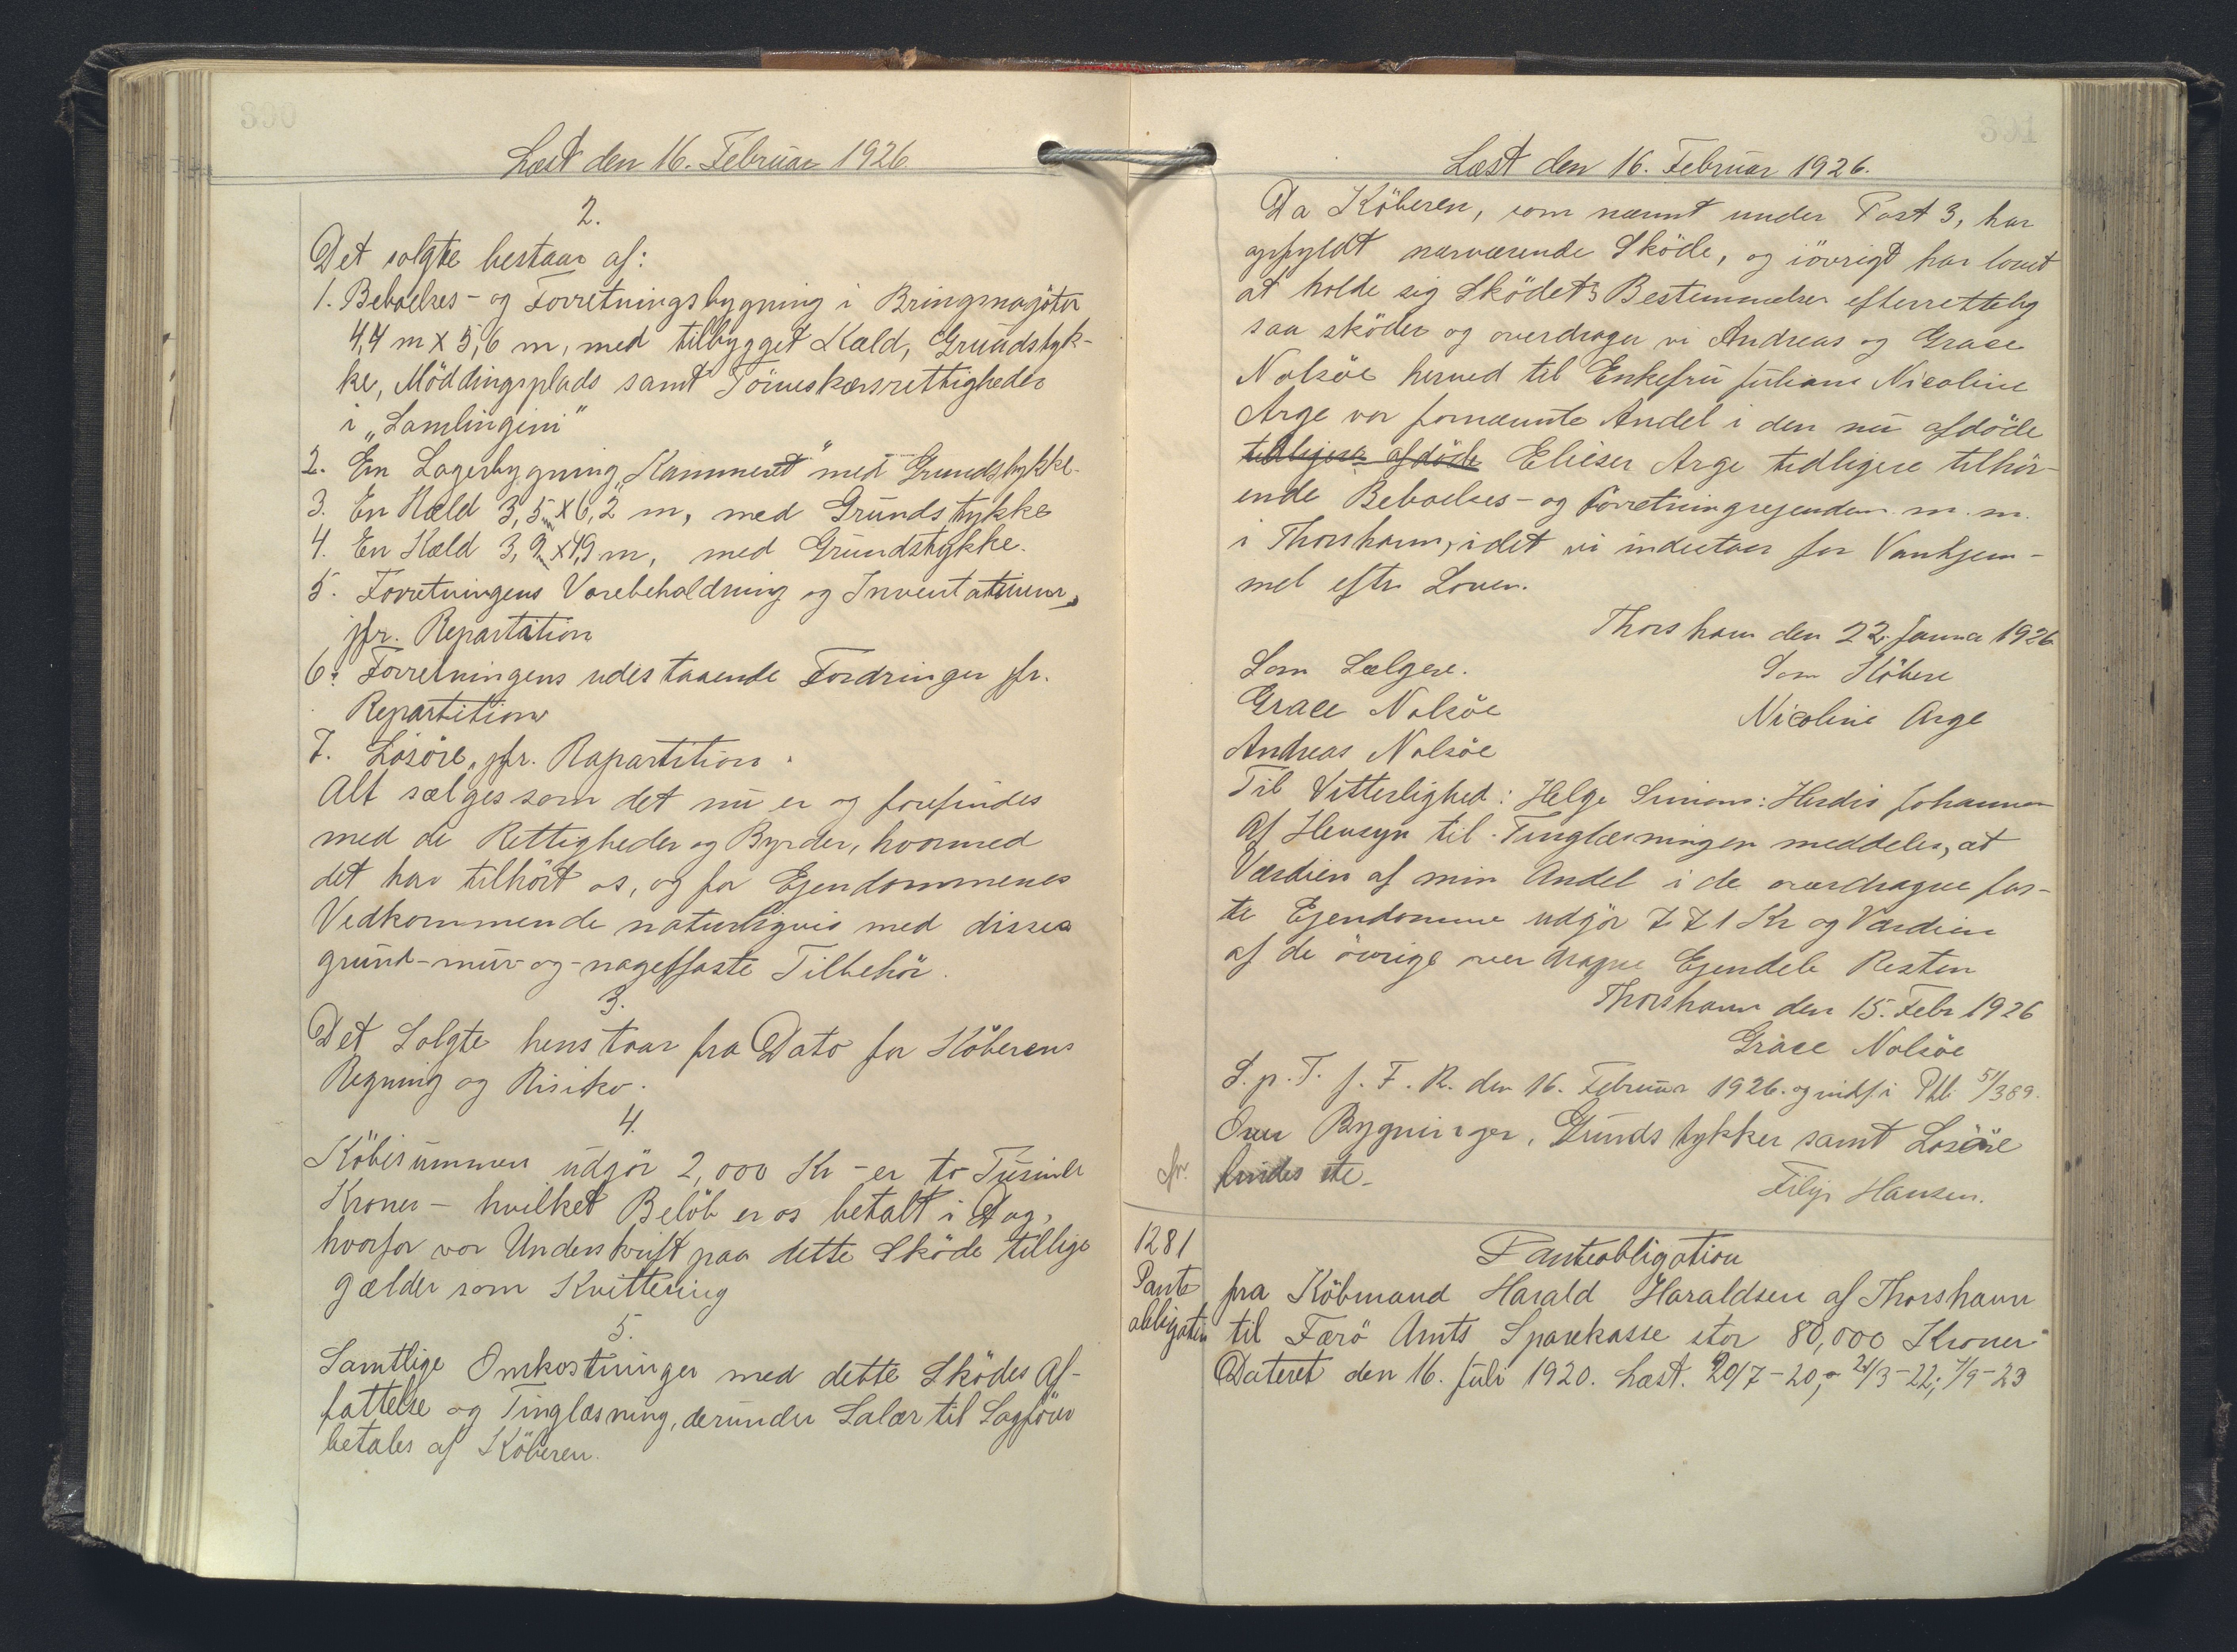 390
Læst den 16. Februar 1926.
2.
Det solgte bestaar af:
1. Beboelses- og Forretningsbygning i Bringsnagöta
4,4 m x 5,6 m, med tilbygget Kald, Grundstyk-
ke, Möddingsplads samt Törveskærsrettigheder
i „
2. En Lagerbygning „Kammeret" med Grundstykke.
3. En Kæld 3,5 m x 6,2 m, med Grundstykke
4. En Kæld 3,9 m x 4,9 m, med Grundstykke.
5. Forretningens Varebeholdning og Inventarium,
jfr. Repartation
6. Forretningens udestaaende Fordringer jfr.
Repartition
7. Lösöre, jfr. Rapartition.
Alt sælges som det nu er og forefindes
med de Rettigheder og Byrder, hvormed
det har tilhört os, og for Ejendommenes
Vedkommende naturligvis med disses
grund- mur- og -nagelfaste Tilbehör.
3.
Det Solgte henstaar fra Dato for Köberens
Regning og Risiko.
4.
Köbesummen udgör 2,000 Kr - er to Tusinde
Kroner - hvilket Belöb er os betalt i Dag,
hvorfor vor Underskrift paa dette Sköde tillige
gælder som Kvittering
5.
Samtlige Omkostninger med dette Sködes Af-
fattelse og Tinglæsning, derunder Salær til Sagförer
betales af Köberen.
391
Læst den 16. Februar 1926.
Da Köberen, som nævnt under Post 3, har
opfyldt nærværende Sköde, og iövrigt har lovet
at holde sig Sködets Bestemmelser efterrettelig
saa sköder og overdrager vi Andreas og Grace
Nolsöe herved til Enkefru Juliane Nicoline
Arge vor fornævnte Andel i den nu afdöde
tidligere afdöde Elieser Arge tidligere tilhör-
ende Beboelses- og Forretningsejendom m. m.
i Thorshavn, idet vi indestaar for Vanhjem-
mel efter Loven.
Thorshavn den 22. Januar 1926
Som Sælgere. Som Köbere
Grace Nolsöe Nicoline Arge
Andreas Nolsöe
Til Vitterlighed: Helge Simons: Herdis Johannesen
Af Hensyn til Tinglæsningen meddeles, at
Værdien af min Andel i de overdragne fas-
te Ejendomme udgör 771 Kr og Værdien
af de övrige overdragne Ejendele Resten
Thorshavn den 15. Febr 1926
Grace Nolsöe
S. p. T. f. F. R. den 16. Februar 1926. og indf. i Ptb. 51/389.
Over Bygninger, Grundstykker samt Lösöre
findes ete.
Filip Hansen.
1281
Pante
obligation
Panteobligation
fra Köbmand Harald Haraldsen af Thorshavn
til Færö Amts Sparekasse stor 80,000 Kroner
Dateret den 16. Juli 1920. Læst. 20/7-20, 21/3-22, 4/9-23